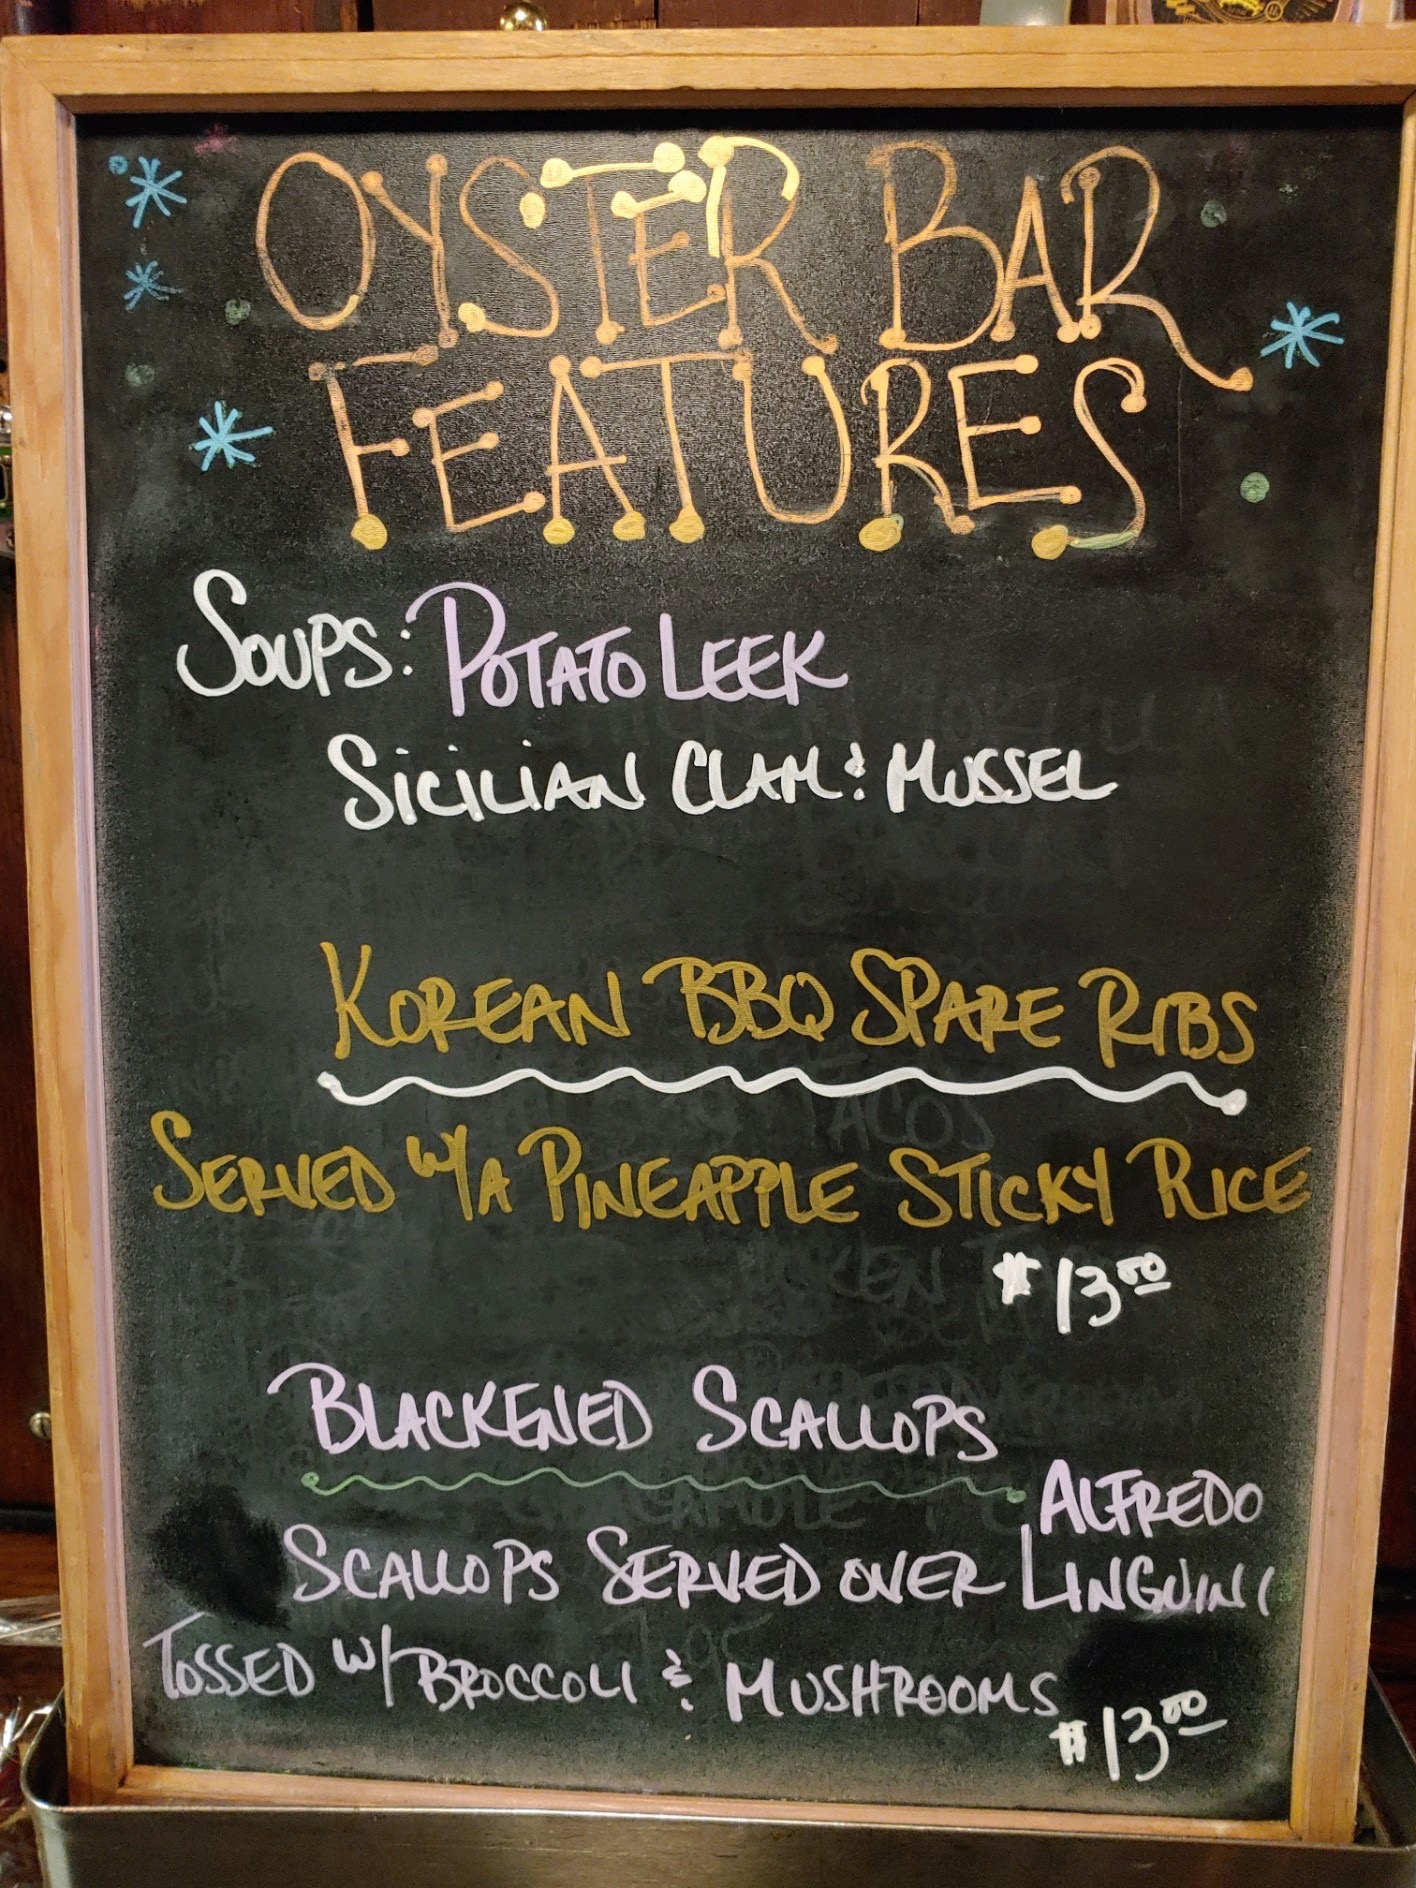 OYSTER BAR
FEATURES
SOUPS: POTATO LEEK
SICILIAN CLAM & MUSSEL
KOREAN BBQ SPARE RIBS
SERVED W/A PINEAPPLE STICKY RICE
$13.00
BLACKENED SCALLOPS
ALFREDO
SCALLOPS SERVED OVER LINGUINI
TOSSED W/ BROCCOLI & MUSHROOMS
$13.00